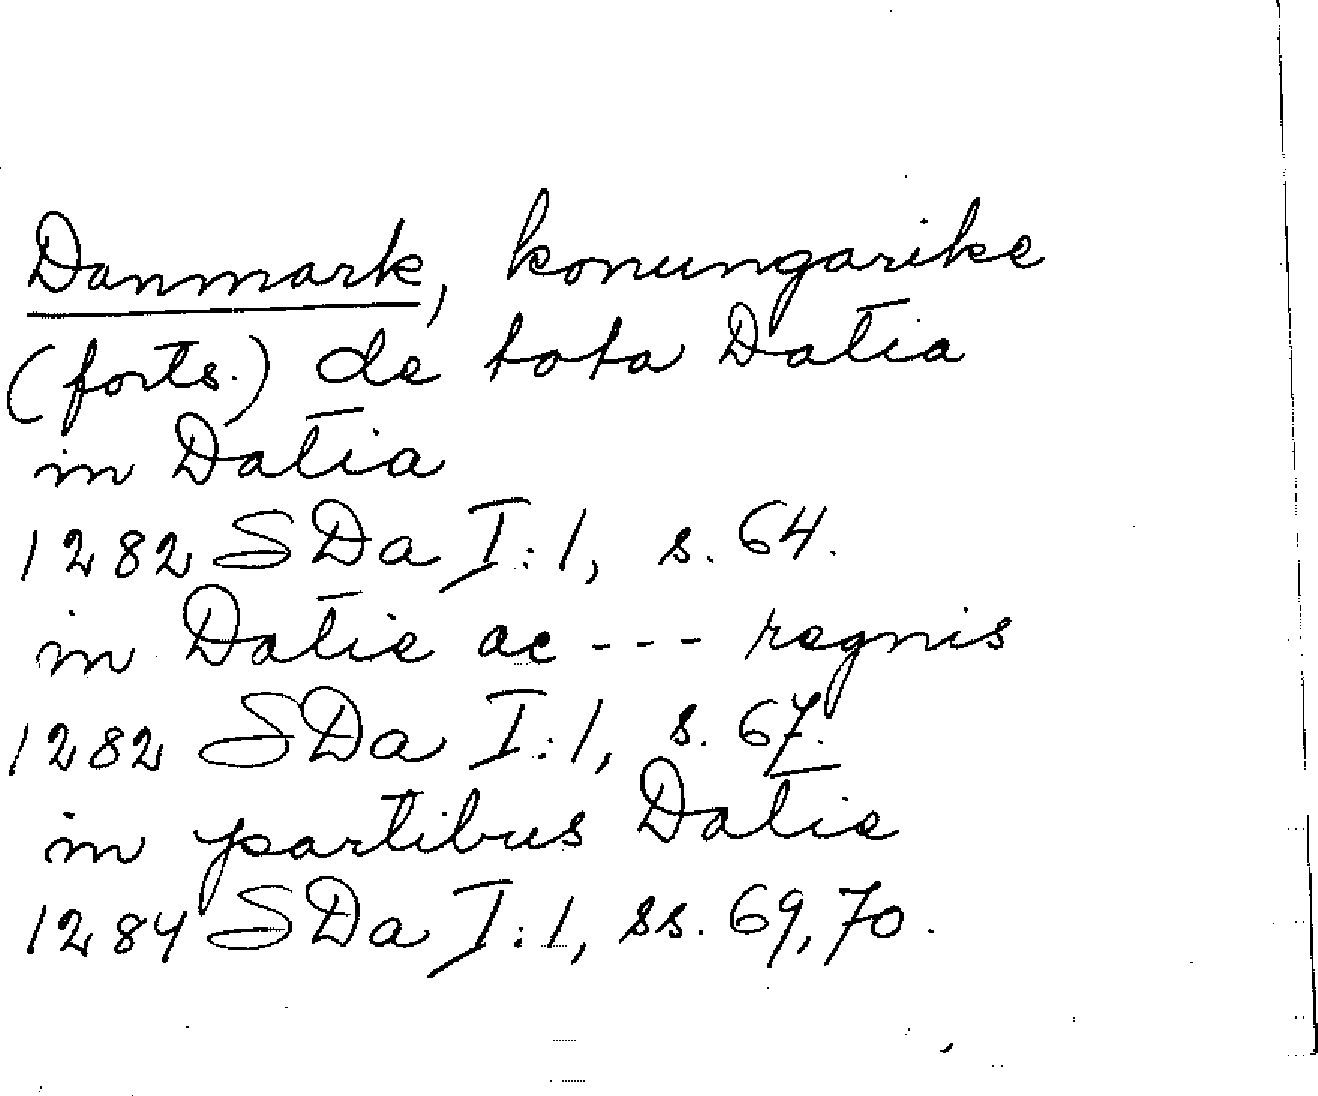 Danmark, konungarike
(forts.) de tota Datia
in Datia
1282 SDa I:1, s. 64.
in Datie ac --- regnis
1282 SDa I:1, s. 67.
in partibus Datie
1284 SDa I:1, ss. 69, 70.